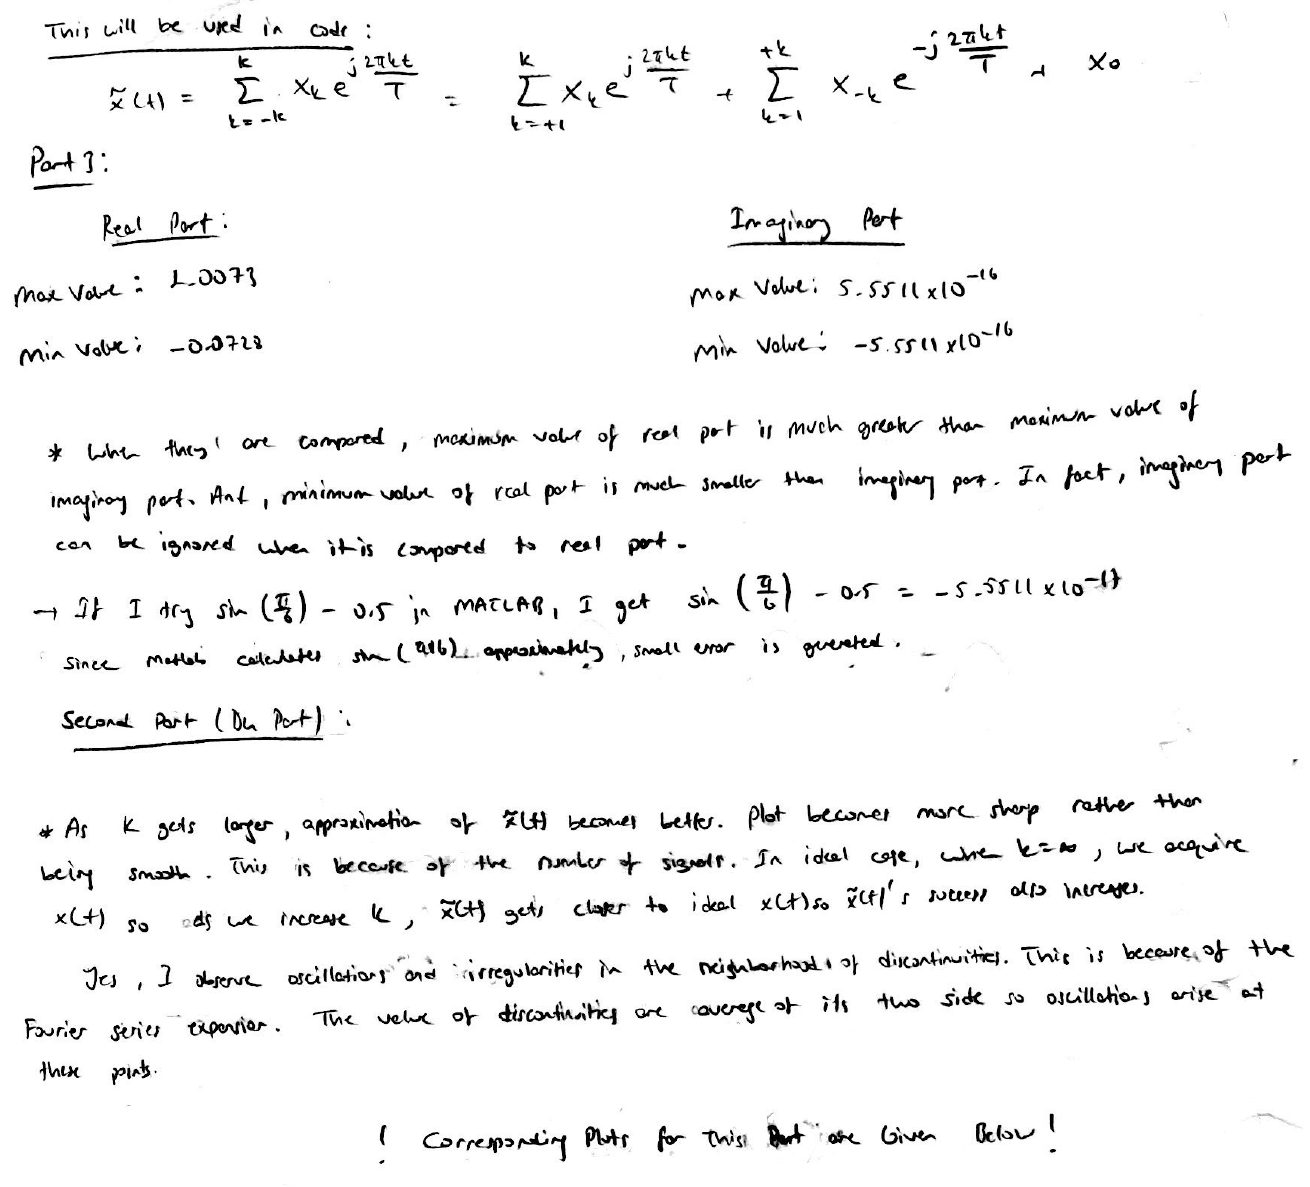 This will be used in code :
x̃(t) = Σ_{k=-k}^{k} X_k e^{j 2πkt/T} = Σ_{k=+1}^{k} X_k e^{j 2πkt/T} + Σ_{k=1}^{+k} X_{-k} e^{-j 2πkt/T} + X_0
Part 3:
Real Part :
Imaginary Part
Max Value : 1.0073
Max Value : 5.5511x10^{-16}
Min Value : -0.0728
Min Value : -5.5511x10^{-16}
* When they are compared , maximum value of real part is much greater than maximum value of
imaginary part. And , minimum value of real part is much smaller than imaginary part. In fact, imaginary part
can be ignored when it is compared to real part.
→ If I try sin(π/6) - 0.5 in MATLAB, I get sin(π/6) - 0.5 = -5.5511x10^{-17}
since Matlab calculates sin(π/6) approximately, small error is generated.
Second Part ( Part) :
* As K gets larger, approximation of x̃(t) becomes better. Plot becomes more sharp rather than
being smooth. This is because of the number of signals. In ideal case, when k=∞, we acquire
x(t) so as we increase k, x̃(t) gets closer to ideal x(t) so x̃(t)'s success also increases.
Yes, I observe oscillations and irregularities in the neighborhoods of discontinuities. This is because of the
Fourier series expansion. The value of discontinuities are average of its two side so oscillations arise at
these points.
! Corresponding Plots for This Part are Given Below !